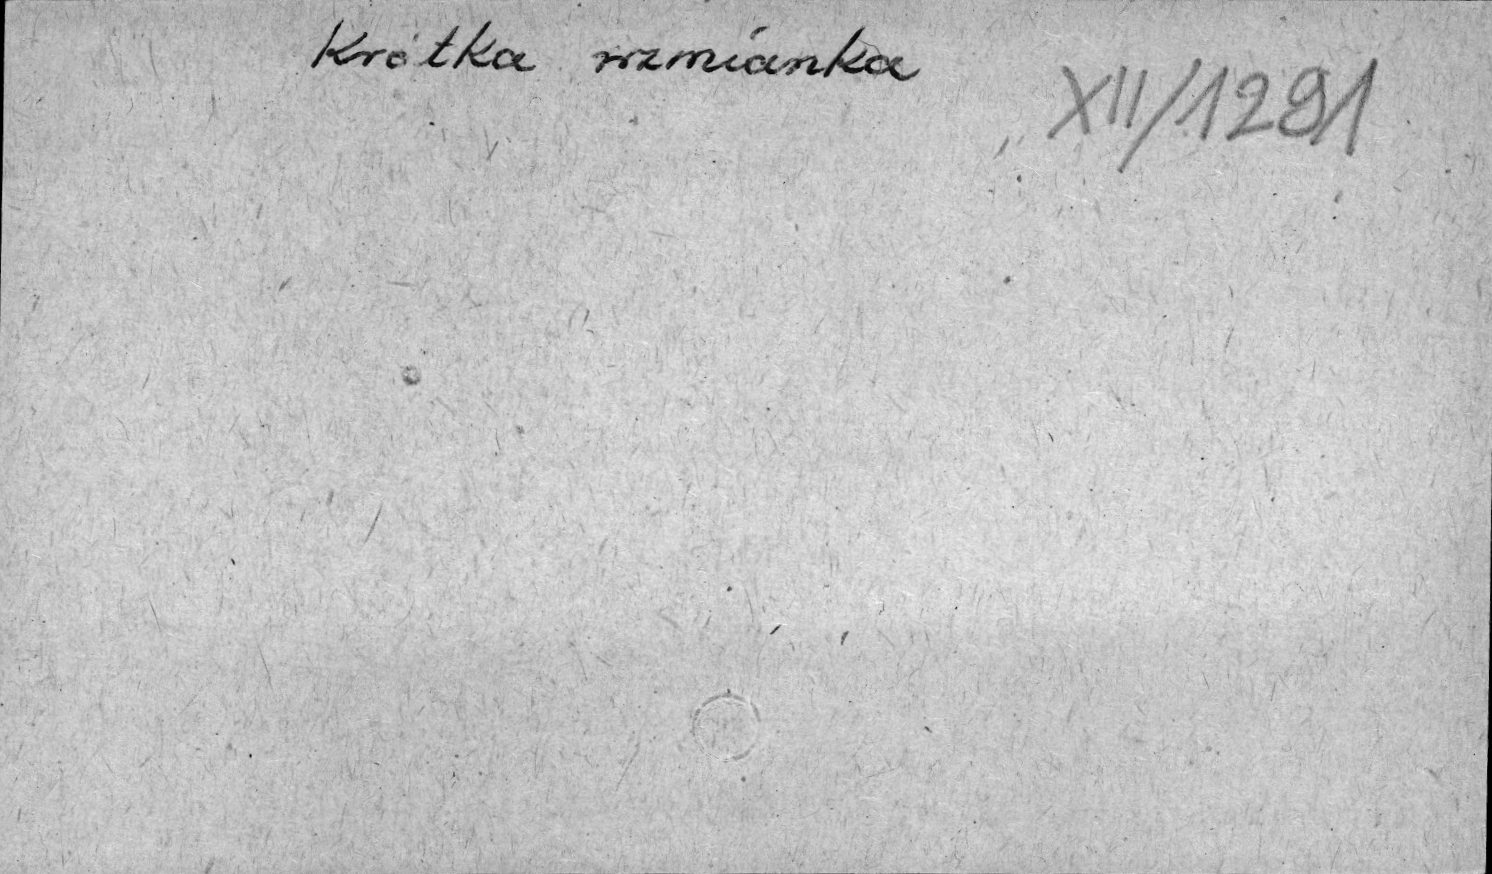 Krótka wzmianka
XII/1291